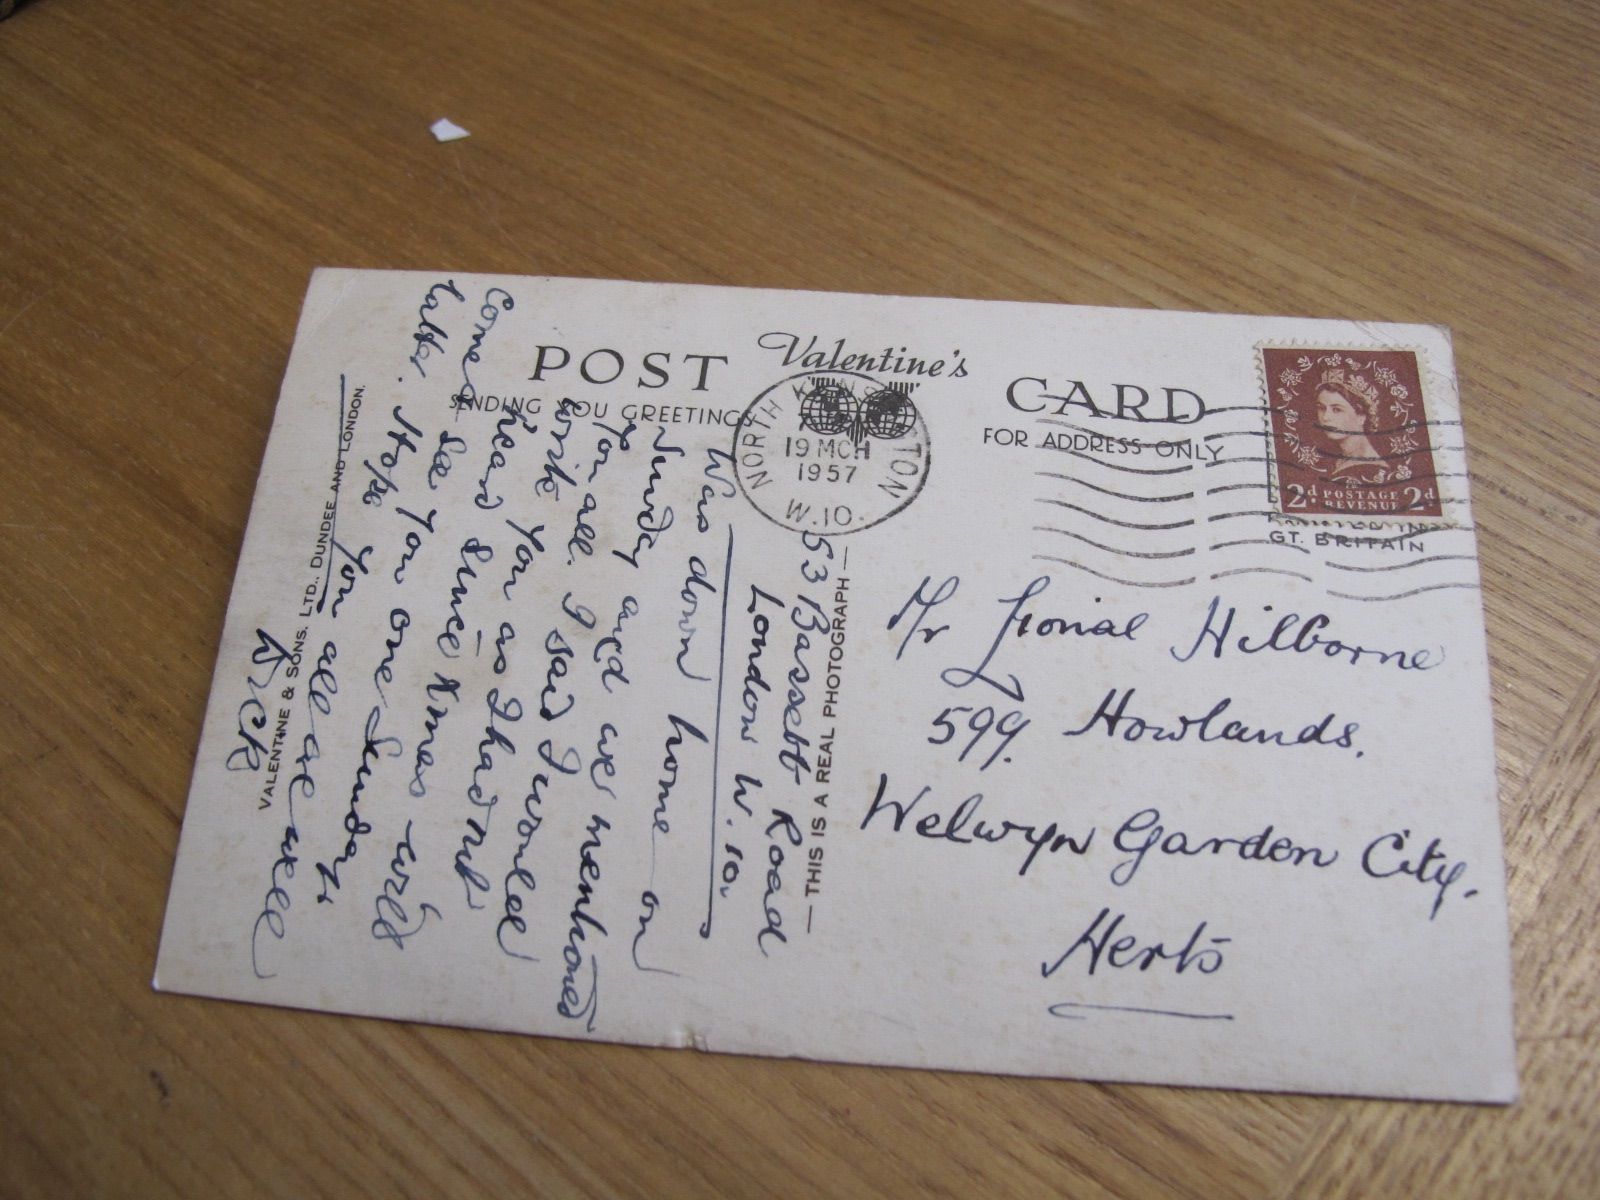 POST Valentine's CARD
SENDING YOU GREETINGS
FOR ADDRESS ONLY
NORTH KENSINGTON
19 MCH
1957
W.10.
2d. POSTAGE REVENUE 2d
GT. BRITAIN
53 Bassett Road
London W.10.
Was down home on
Sunday and we mentioned
you all. I said I would
write you as I had not
heard since Xmas - will
come & see you one Sunday
later. Hope you all are well
Dick
Mr Lional Hilborne
599. Howlands.
Welwyn Garden City.
Herts
— THIS IS A REAL PHOTOGRAPH —
VALENTINE & SONS. LTD., DUNDEE AND LONDON.